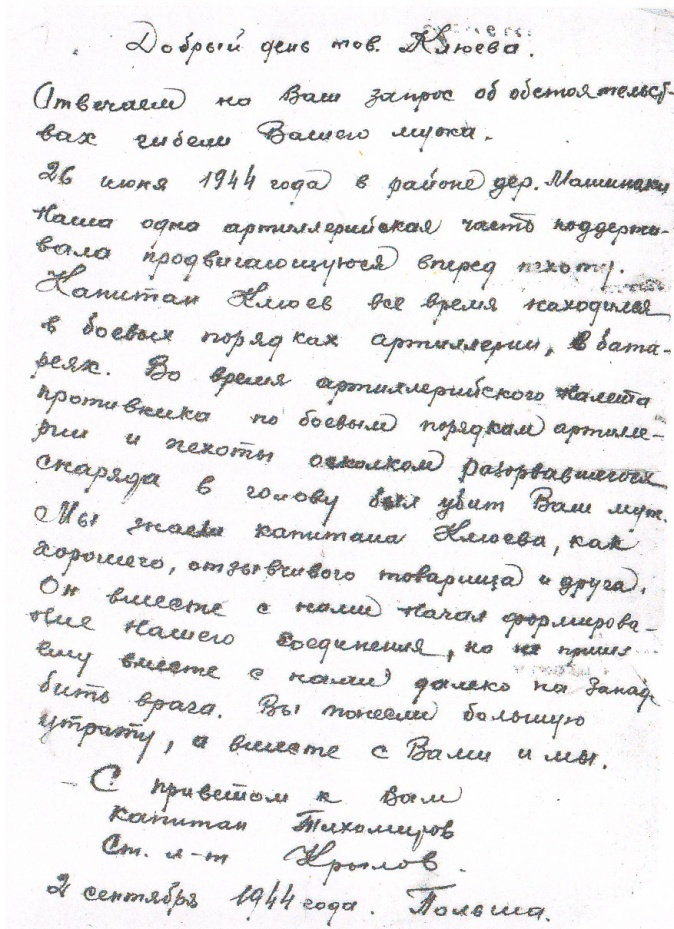 Добрый день тов. Клюева.
Отвечаем на Ваш запрос об обстоятельст-
вах гибели Вашего мужа.
26 июня 1944 года в районе дер. Машинаки
наша одна артиллерийская часть поддержи-
вала продвигающуюся вперед пехоту.
Капитан Клюев все время находился
в боевых порядках артиллерии, в бата-
реях. Во время артиллерийского налета
противника по боевым порядкам артилле-
рии и пехоты осколком разорвавшегося
снаряда в голову был убит Ваш муж.
Мы знали капитана Клюева, как
хорошего, отзывчивого товарища и друга.
Он вместе с нами начал формирова-
ние нашего соединения, но не пришл
ему вместе с нами далеко на Запад
бить врага. Вы понесли большую
утрату, а вместе с Вами и мы.
С приветом к Вам
капитан Тихомиров
Ст. л-т Крылов.
2 сентября 1944 года. Польша.